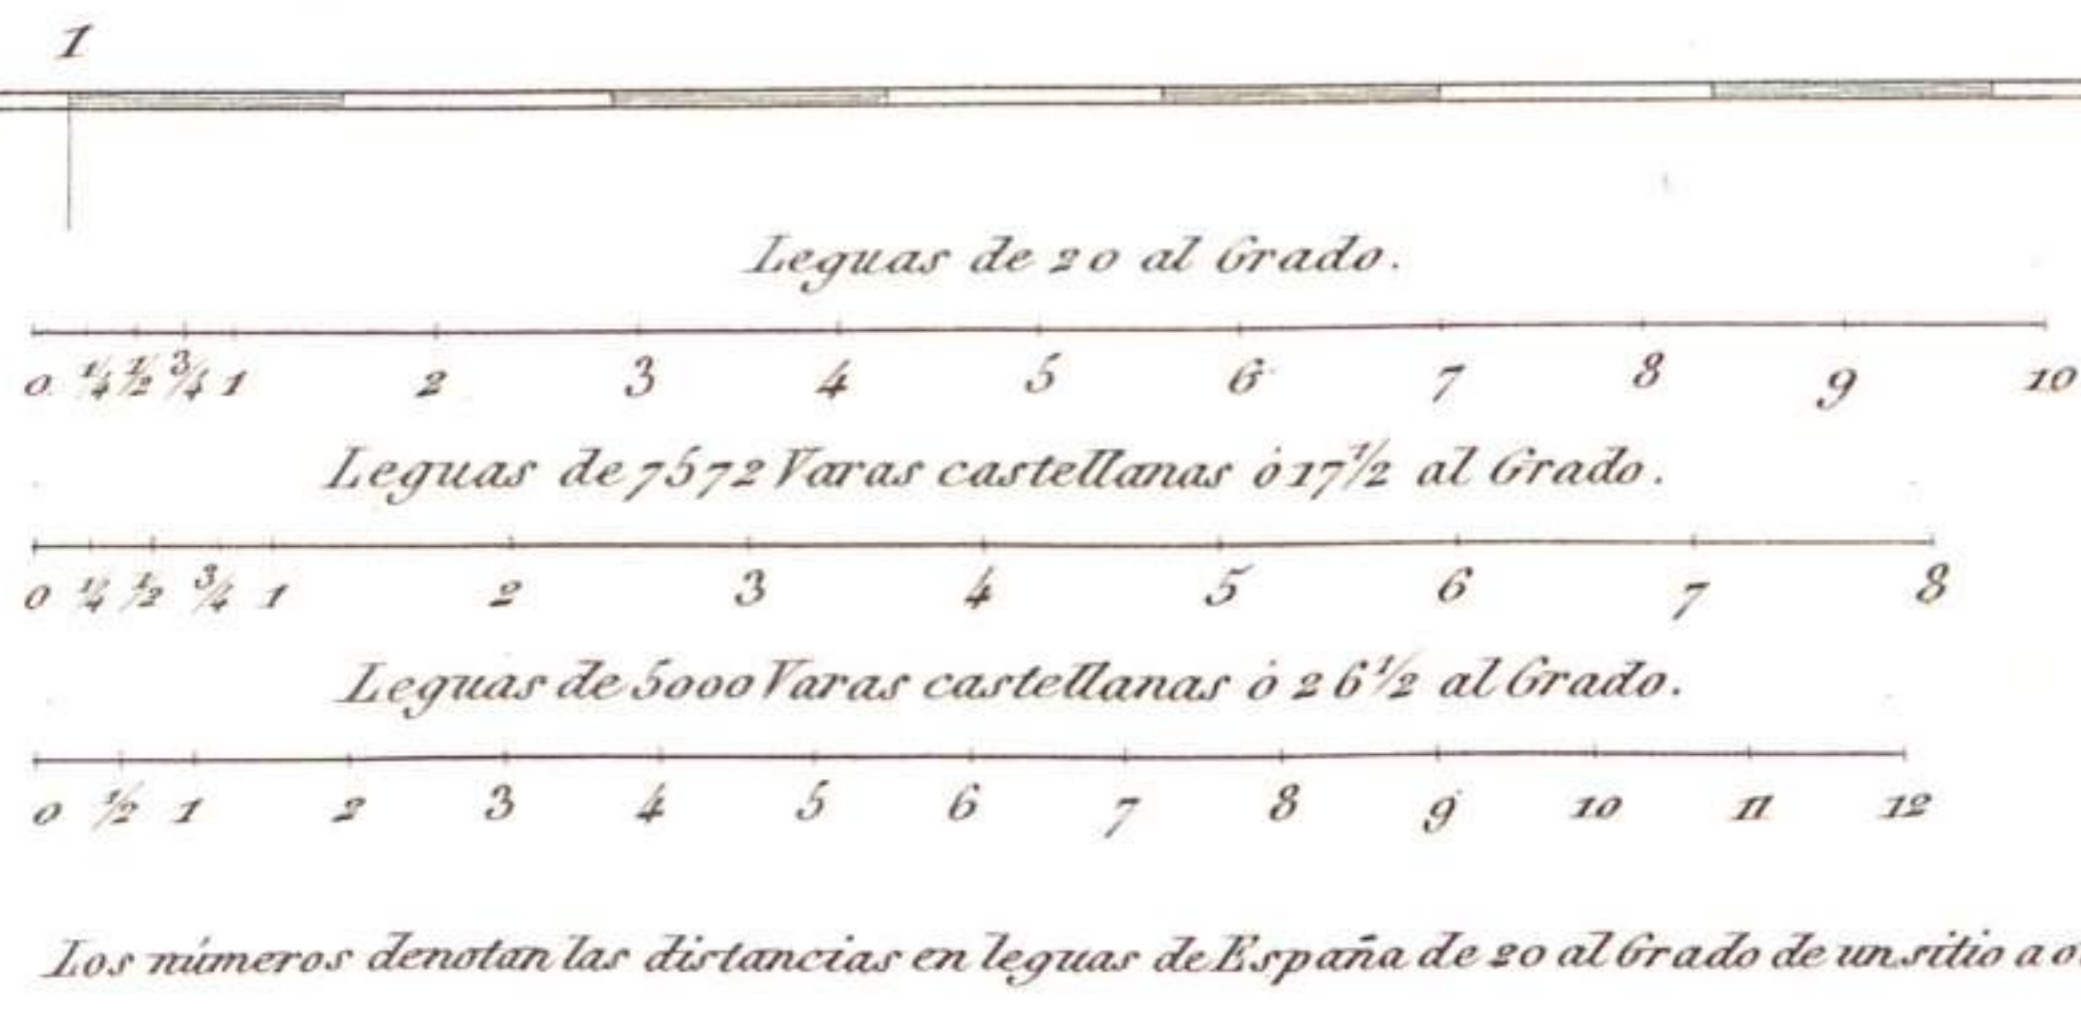 1
Leguas de 20 al Grado.
0 1/4 1/2 3/4 1 2 3 4 5 6 7 8 9 10
Leguas de 7572 Varas castellanas ó 17 1/2 al Grado.
0 1/4 1/2 3/4 1 2 3 4 5 6 7 8
Leguas de 5000 Varas castellanas ó 26 1/2 al Grado.
0 1/2 1 2 3 4 5 6 7 8 9 10 11 12
Los números denotan las distancias en leguas de España de 20 al Grado de un sitio a o